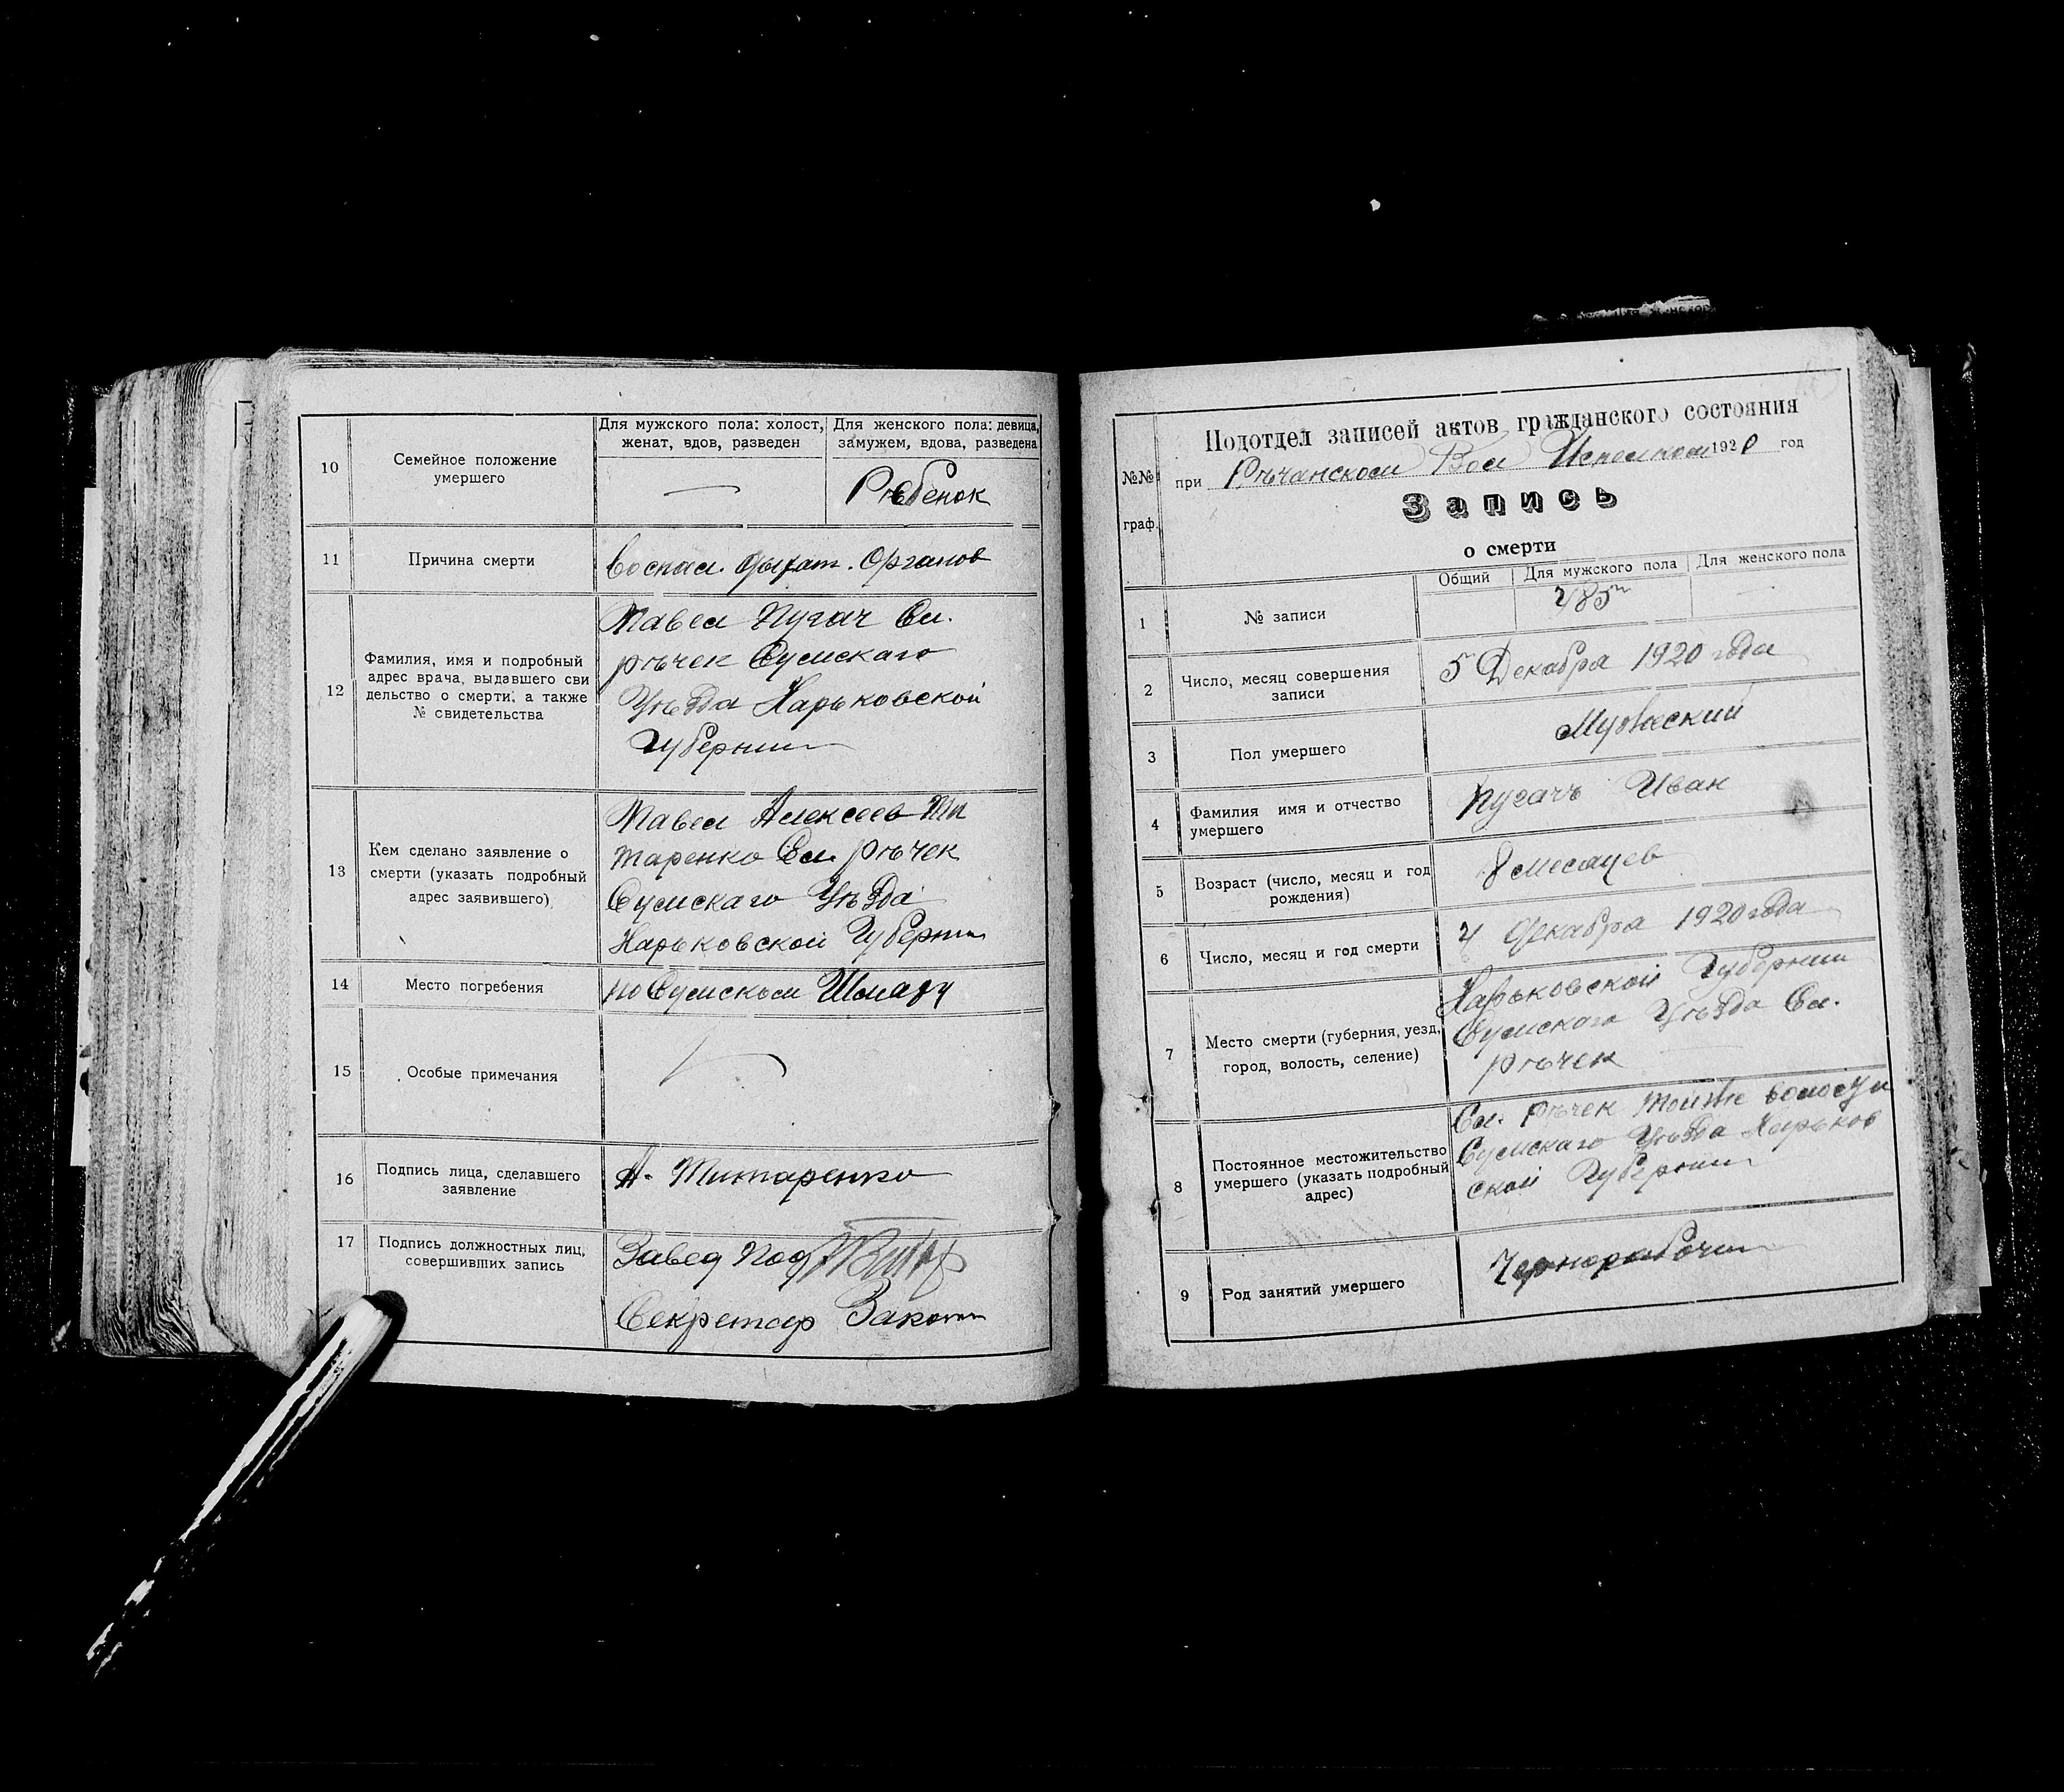 10
Семейное положение
умершего
Для мужского пола: холост,
женат, вдов, разведен
Для женского пола: девица,
замужем, вдова, разведена
Рѣбенок
11
Причина смерти
Воспал. Дыхат. Органов
12
Фамилия, имя и подробный
адрес врача, выдавшего сви
дельство о смерти, а также
№ свидетельства
Павел Пугач Сл.
рѣчек Сумскаго
Уѣзда Харьковской
Губернии
13
Кем сделано заявление о
смерти (указать подробный
адрес заявившего)
Павел Алексеев Ти
таренко Сл. рѣчек
Сумскаго Уѣзда
Харьковской Губернии
14
Место погребения
по Сумскому Шляху
15
Особые примечания
16
Подпись лица, сделавшего
заявление
А. Титаренко
17
Подпись должностных лиц,
совершивших запись
Завед Под
Секретар
№№
граф.
Подотдел записей актов гражданского состояния
при Рѣчанском Вол Исполком 1920 год
Запись
о смерти
Общий
Для мужского пола
Для женского пола
1
№ записи
285
2
Число, месяц совершения
записи
5 Декабря 1920 года
3
Пол умершего
Мужеский
4
Фамилия имя и отчество
умершего
Пугачъ Иван
5
Возраст (число, месяц и год
рождения)
8 месяцев
6
Число, месяц и год смерти
4 Декабря 1920 года
7
Место смерти (губерния, уезд,
город, волость, селение)
Харьковской Губернии
Сумскаго Уѣзда Сл.
рѣчек
8
Постоянное местожительство
умершего (указать подробный
адрес)
Сл. рѣчек тойже волости
Сумскаго Уѣзда Харьков
ской Губернии
9
Род занятий умершего
Чернорабочий